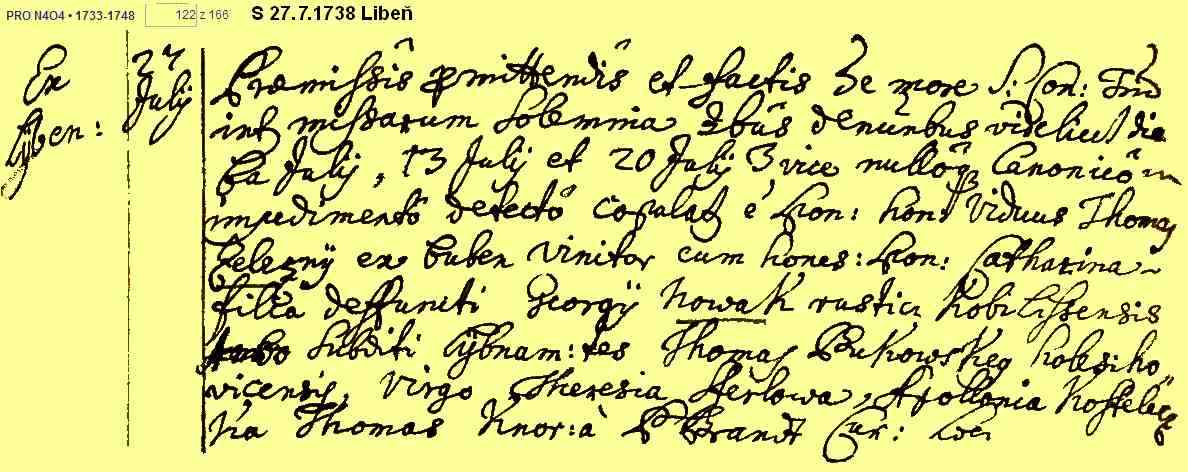 PRO N4O4 • 1733-1748 122 z 166 S 27.7.1738 Libeň
Ex 27 Præmissis promittendis et factis de more S: Con: Trid
Lyben: July int missarum solemnia 3bus denun̄bus videlicet die
6a July, 13 July et 20 July 3 vice nulloq Canonico
impedimento detecto copulat e hon: viduus Thomas
Zelezny ex Buben vinitor cum hones: Catharina
filia deffuncti Georgy Nowak rustici Kobilissensis
subditi Lybnam: tes Thomas Bukowskeg holessho
vicensis, virgo Theresia Sterlowa, Apollonia Kosteleczka
Thomas Knor: à P: Brandt Cur: Loci